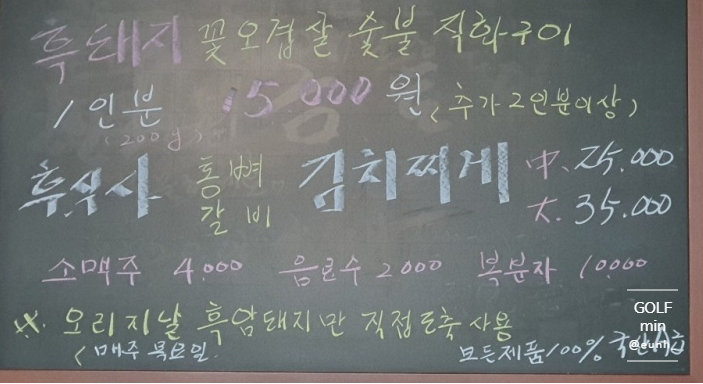 흑돼지 꽃오겹살 숯불 직화구이
1인분 15.000원 (추가 2인분이상)
(200g)
흑우사 통뼈 갈비 김치찌게 中. 25.000
大. 35.000
소맥주 4.000 음료수 2000 복분자 10000
※. 오리지날 흑암돼지만 직접도축 사용
(매주 목요일. 모든제품 100%
GOLF
min
@eunh